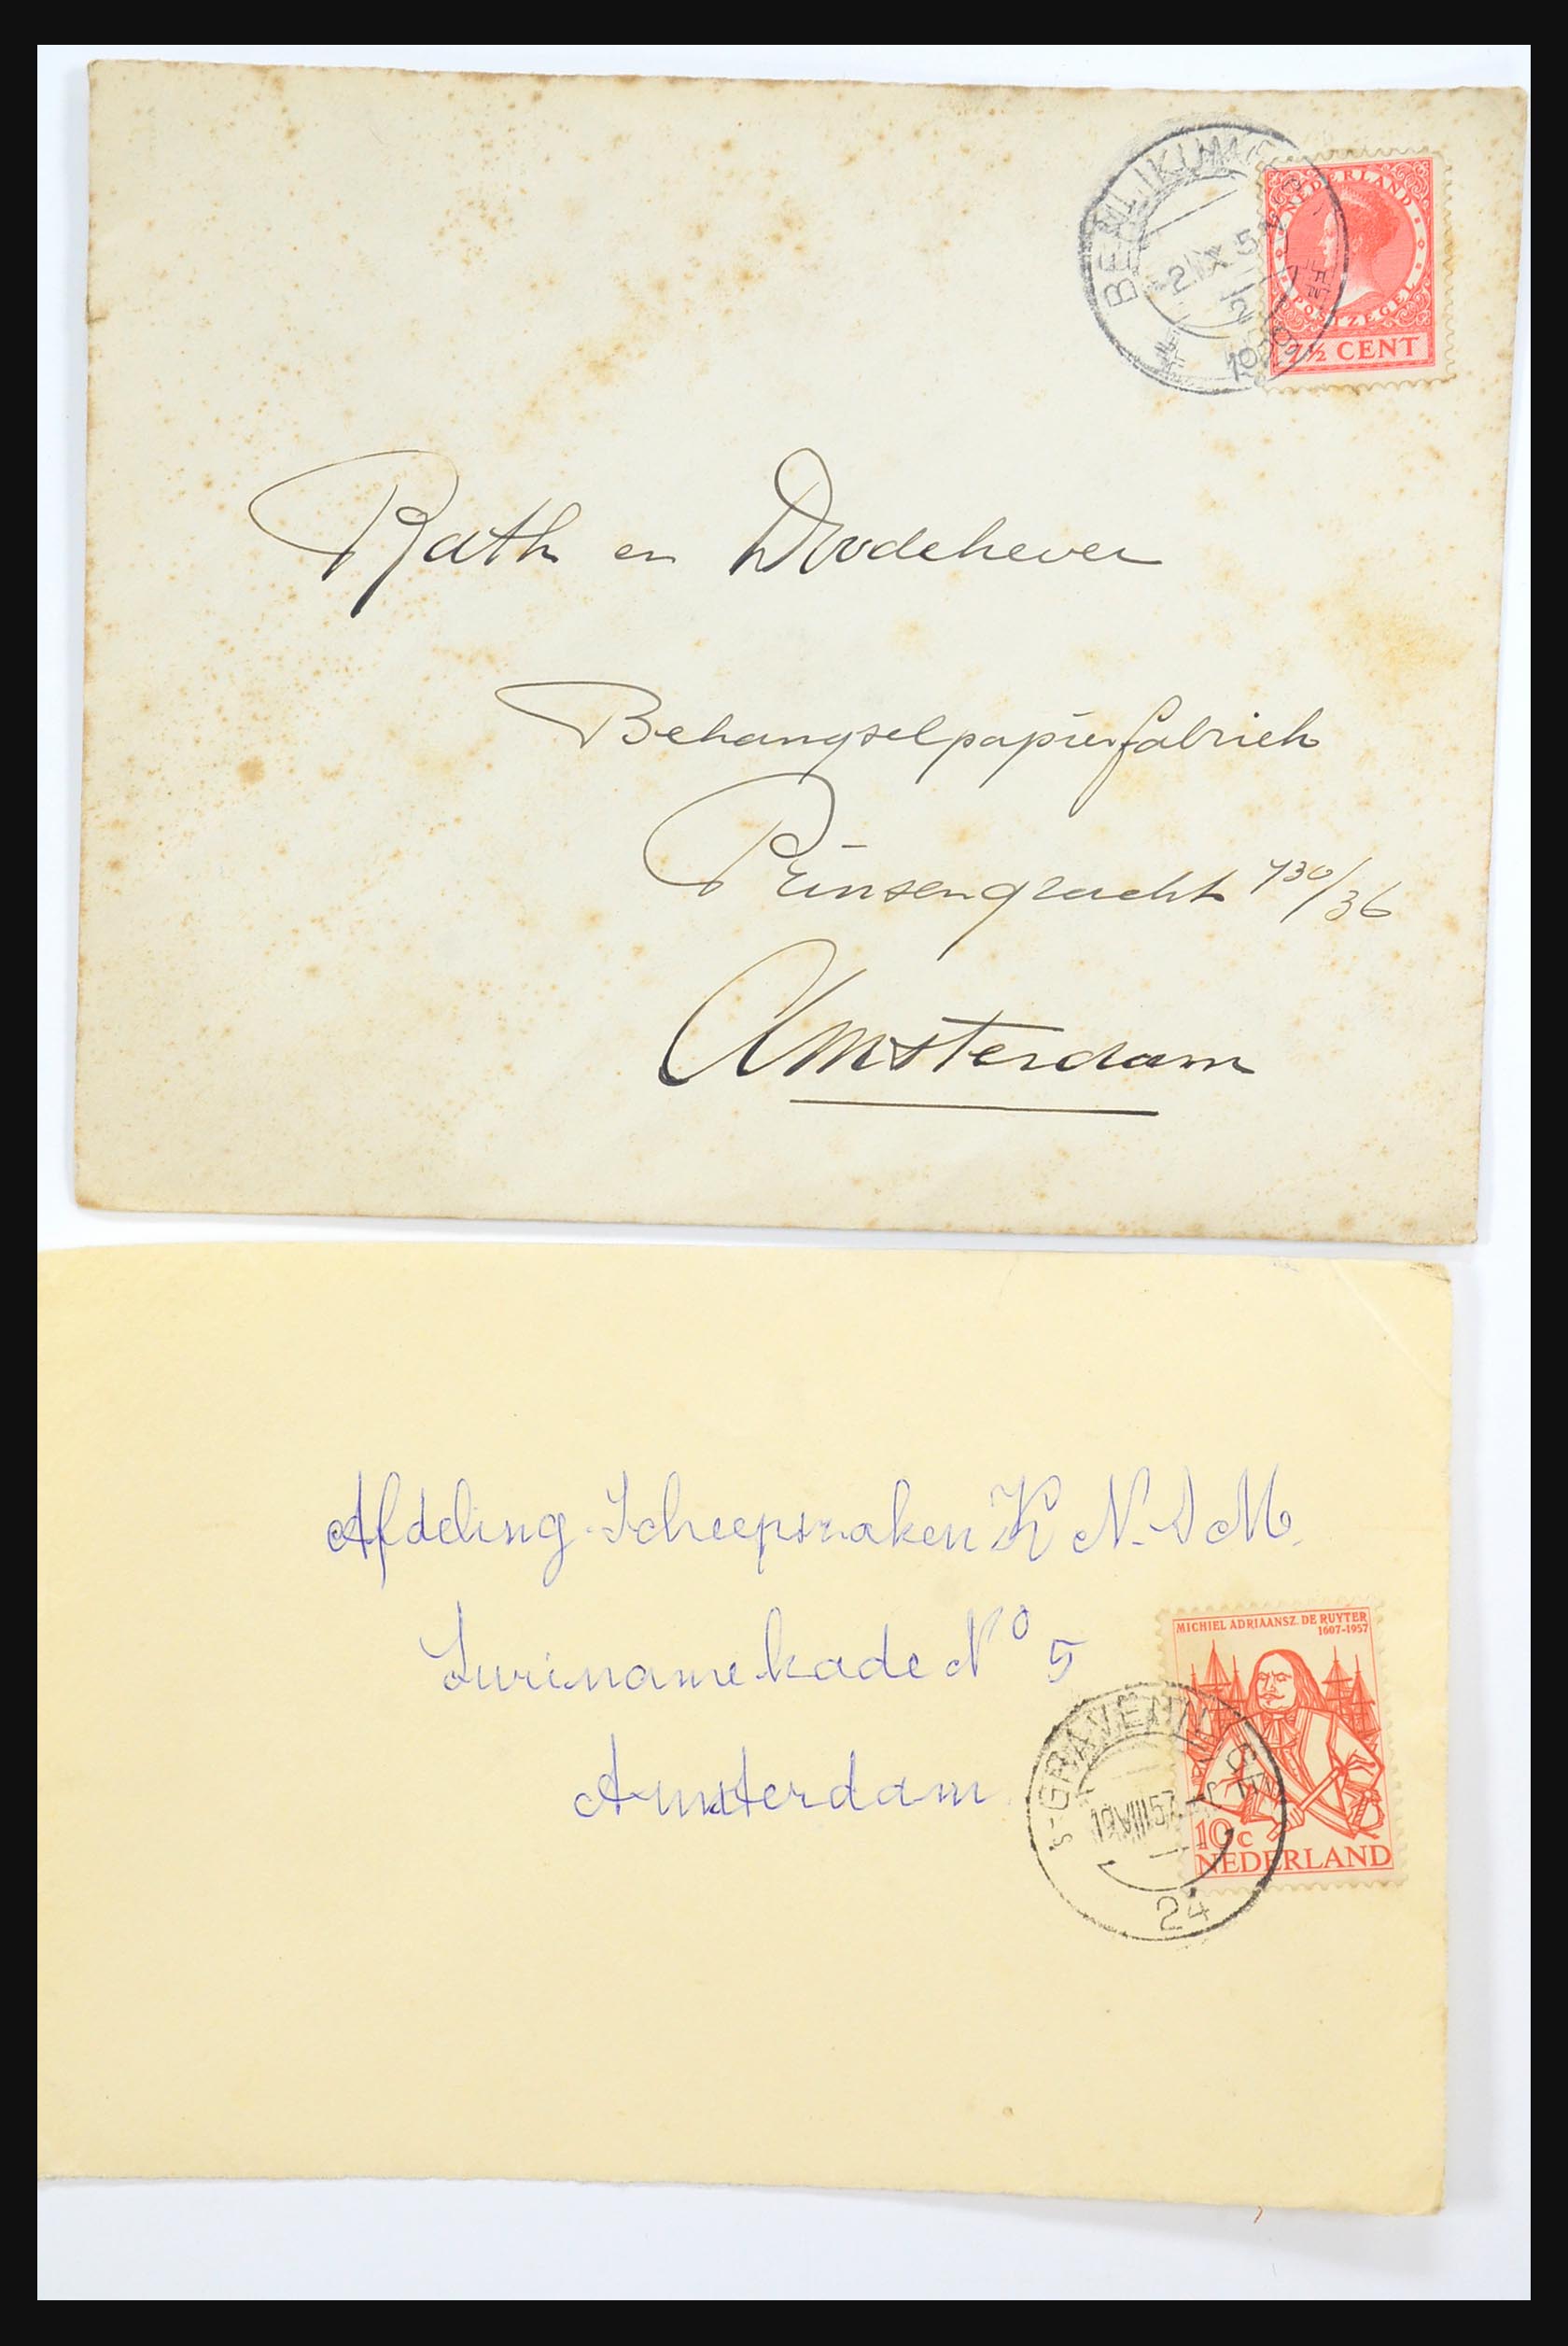 NEDERLAND
POSTZEGEL
7½ CENT
1929
Rath en Doodehever
Behangselpapierfabriek
Prinsengracht 730/36
Amsterdam
Afdeling Scheepszaken K N. S M.
Surinamekade No 5
Amsterdam
MICHIEL ADRIAANSZ. DE RUYTER
1607-1957
10c
NEDERLAND
19 VIII 57
24